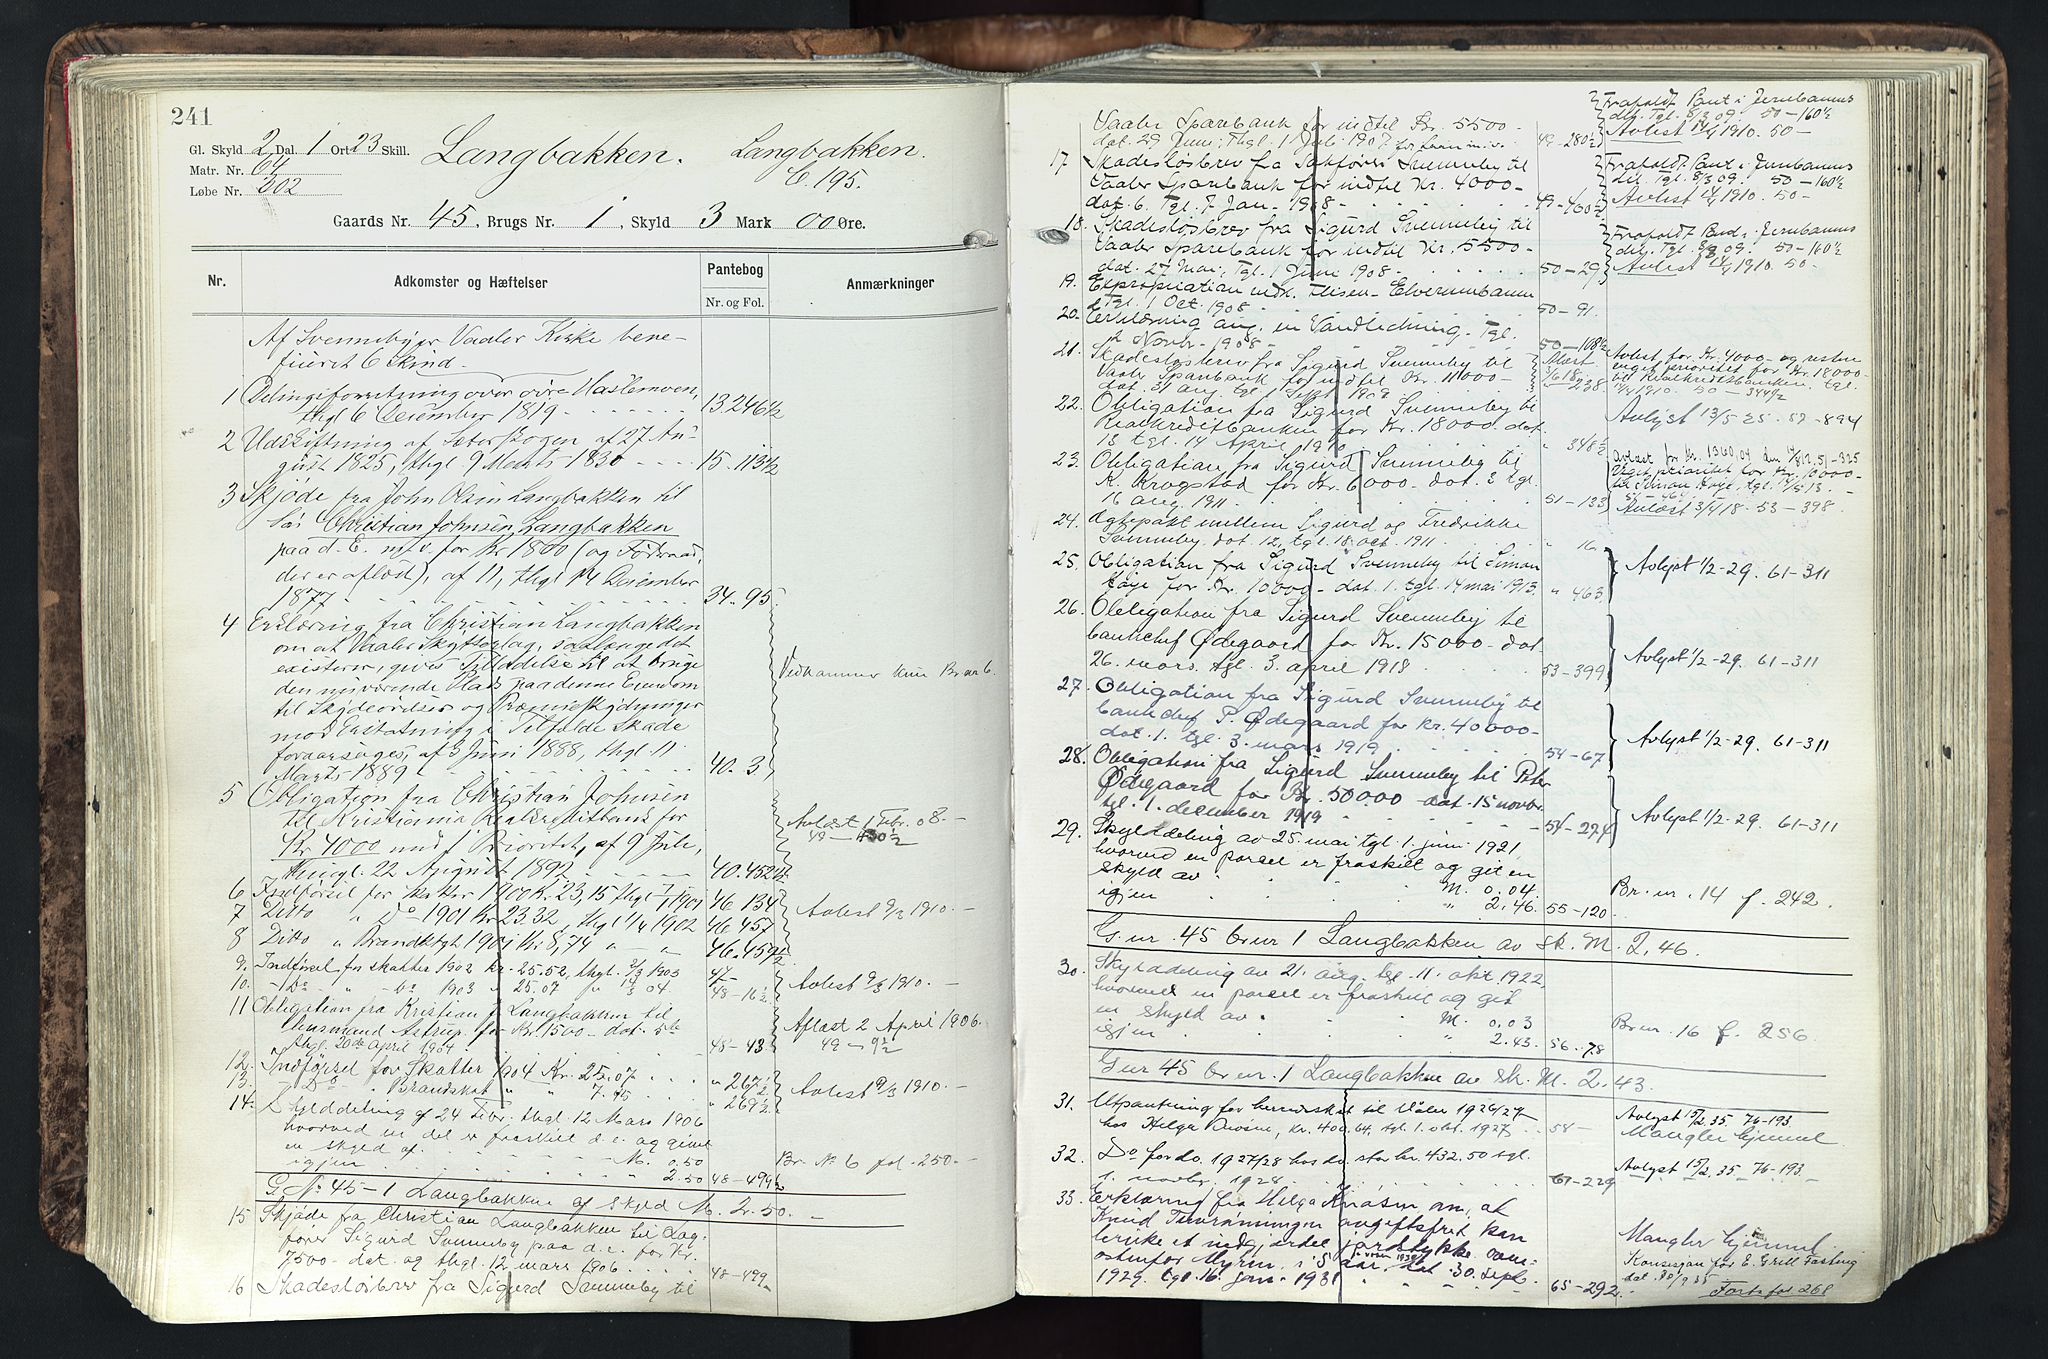 241
Gl. Skyld 2 Dal. 1 Ort 23 Skill.
Matr. Nr. 64
Løbe Nr. 202
Langbakken. Langbakken.
C. 195.
Gaards Nr. 45, Brugs Nr. 1, Skyld 3 Mark 00 Øre.
Nr. Adkomster og Hæftelser Pantebog Nr. og Fol. Anmærkninger
Af Svenneby er Vaaler Kirke bene-
ficeret 6 Skind.
1 Delingsforretning over øvre Haslemoen,
thgl 6 December 1819 - 13.246½
2 Udskiftning af Sæterskogen af 27 Au-
gust 1825, thgl 9 Marts 1830 - 15.113½
3 Skjøde fra John Olsen Langbakken til
Søn Christian Johnsen Langbakken
paa d. E. m. v. for Kr 1800 (og Føderaad,
der er afløst), af 11, thgl 14 December
1877 34.95
4 Erklæring fra Christian Langbakken
om at Vaaler Skytterlag, saalænge det
existerer, gives Tilladelse til at bruge
den nuværende Plads paa denne Eiendom
til Skydeøvelser og Præmieskydninger
mod Erstatning i Tilfælde Skade
foraarsages, af 3 Juni 1888, thgl. 11
Marts 1889 40.3 Vedkommer kun Br nr 6.
5 Obligation fra Christian Johnsen
til Kristiania Realkreditbank for
Kr 4000 mod 1 Prioritet, af 9 Juli,
thingl. 22 August 1892 40.452 Avlæst 1 Febr. 08. -
49 - 430½
6 Indførsel for skatter 1900 Kr. 23,15 thgl 1901 46 134
7 Ditto " Do 1901 Kr 23.32, thgl 1/4 1902 46 457 Avlest 9/3 1910. -
8 Ditto " Brandktgt 1901 Kr 8,74 " - " 46.459½
9. Indførsel for skatter 1902 kr. 25.52, thgl. 2/3 1903 47
10. - Do - " - Do 1903 " 25.07 " 3 04 48-16½ Avlest 9/3 1910. -
11 Obligation fra Kristian J. Langbakken til
husmand Astrup for Kr. 1500 - dat. 5te
thgl. 20de April 1904 48-43 Aflæst 2 April 1906.
49 - 9½
12. Indførsel for Skatter 1904 Kr. 25.07 " 267½
13. - Do - " Brandskat " 7.45 " 269½ Avlest 9/3 1910 -
14. Skylddeling af 24 Febr. thgl. 12 Mars 1906
hvorved en del er fraskilt d. e. og givet
en skyld af M. 0.50 Br. No 6 fol. 250. -
igjen " 2.50 48-499
G. No 45-1 Langbakken af skyld M. 2.50. -
15 Skjøde fra Christian Langbakken til Sag-
fører Sigurd Svenneby paa d. e. for Kr.
7500 - dat og thgl. 12 mars 1906. 48-499
16 Skadesløsbrev fra Sigurd Svenneby til
Vaaler Sparebank for indtil Kr. 5500 -
dat. 29 Juni, Thgl. 1 Juli 1907 49-280½
Frafaldt Pant i Jernbanens
del. Tgl. 8/3 09. 50-160½
Avlest 1910. 50 -
17 Skadesløsbrev fra Sakfører Svenneby til
Vaaler Sparebank for indtil Kr. 4000 -
dat. 6. Tgl. 7. Jan. 1908 49-460½
Frafaldt Pant i Jernbanens
del. Tgl. 8/3 09. 50-160½
Avlest 1910. 50 -
18. Skadesløsbrev fra Sigurd Svenneby til
Vaaler Sparebank for indtil Kr. 5500 -
dat. 27 Mai, Tgl. 1 Juni 1908 50-29
Frafaldt Pant i Jernbanens
del. Tgl. 8/3 09. 50-160½
Avlest 1910. 50 -
19. Expropriation vedk. Flisen-Elverumbanen
Tgl. 1 Oct. 1908 50-91.
20. Erklæring ang. en Vandledning. Tgl.
2 Novbr. 1908 50-108½
21. Skadesløsbrev fra Sigurd Svenneby til
Vaaler Sparebank for indtil Kr. 11000 -
dat. 31 aug. tgl 1 Sept 1909 238
Avlest for Kr. 4000 - og resten
veget prioritet for Kr. 18000 -
til Realkreditbanken. tgl.
1910. 50 - 344½
22. Obligation fra Sigurd Svenneby til
Realkreditbanken for Kr. 18000. dat.
13 tgl. 14 April 1910 " 348½ Avlyst 13/5 25. 57-894
23. Obligation fra Sigurd Svenneby til
K. Krogstad for Kr. 6000 - dat. 3 tgl.
16 aug. 1911. 51-133
Avlæst for Kr. 1360,04 den 51-325
Veget prioritet for Kr. 10000 -
til Simon Høje, tgl. 14/5 13. -
51-464
Avlæst 3/4 18. 53-398.
24. Ægtepakt mellem Sigurd og Fredrikke
Svenneby. dat. 12, tgl. 18. oct. 1911. " 16
25. Obligation fra Sigurd Svenneby til Simon
Høje for Kr. 10000 - dat. 1. tgl. 14 mai 1913. " 463 Avlyst 1/2-29. 61-311
26. Obligation fra Sigurd Svenneby til
bankchef Ødegaard for Kr. 15000 - dat.
26. mars, tgl. 3. april 1918 53-399 Avlyst 1/2-29. 61-311
27. Obligation fra Sigurd Svenneby til
bankchef P. Ødegaard for Kr. 40000 -
dat. 1. tgl. 3. mars 1919. 54-67 Avlyst 1/2-29. 61-311
28. Obligation fra Sigurd Svenneby til Peter
Ødegaard for Kr. 50000 - dat. 15 novbr.
tgl. 1. december 1919 54-224 Avlyst 1/2-29. 61-311
29. Skylddeling av 25. mai tgl. 1. juni 1921,
hvorved en parcel er fraskilt og git en
skyld av M. 0.04 Br. nr. 14 f. 242.
igjen " 2.46. 55-120.
G. nr. 45 br nr 1 Langbakken av sk. M. 2.46.
30. Skylddeling av 21. aug. tgl. 11. okt. 1922,
hvorved en parcel er fraskilt og git
en skyld av M. 0.03 Br nr. 16 f. 256.
igjen " 2.43. 56-78
G nr 45 br nr. 1 Langbakken av sk. M. 2.43.
31. Utpantning for herredsskat til Våler 1926/27
hos Helga Kvosen, kr. 400.64, tgl. 1. okt. 1927. 58 - Avlyst 15/2.35. 76-193.
Mangler hjemmel.
32. Do for do. 1927/28 hos do. stor kr. 432.50 tgl.
1. novbr. 1928 61-229 Avlyst 15/2.35. 76-193.
33. Erklæring fra Helga Kvosen om, at
Knud avgiftsfrit kan
bruke et indgjerdet jordstykke
ostenfor Myren i 5 aar. dat. 30. sept.
1929. tgl. 16. jan. 1931 65-292.
Mangler hjemmel
Konsesjon for E. Grill Fasting
dat. 20/9 35
Forts. fol 268